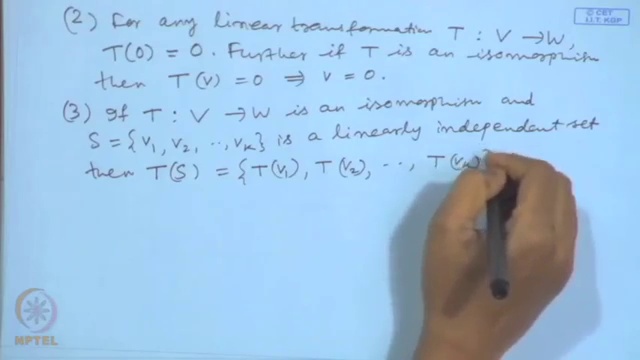 © CET
I.I.T. KGP
(2) For any linear transformation T : V → W,
T(0) = 0. Further if T is an isomorphism
then T(v) = 0 ⇒ v = 0.
(3) If T : V → W is an isomorphism and
S = {v1, v2, .., vk} is a linearly independent set
then T(S) = {T(v1), T(v2), .., T(vk)}
NPTEL